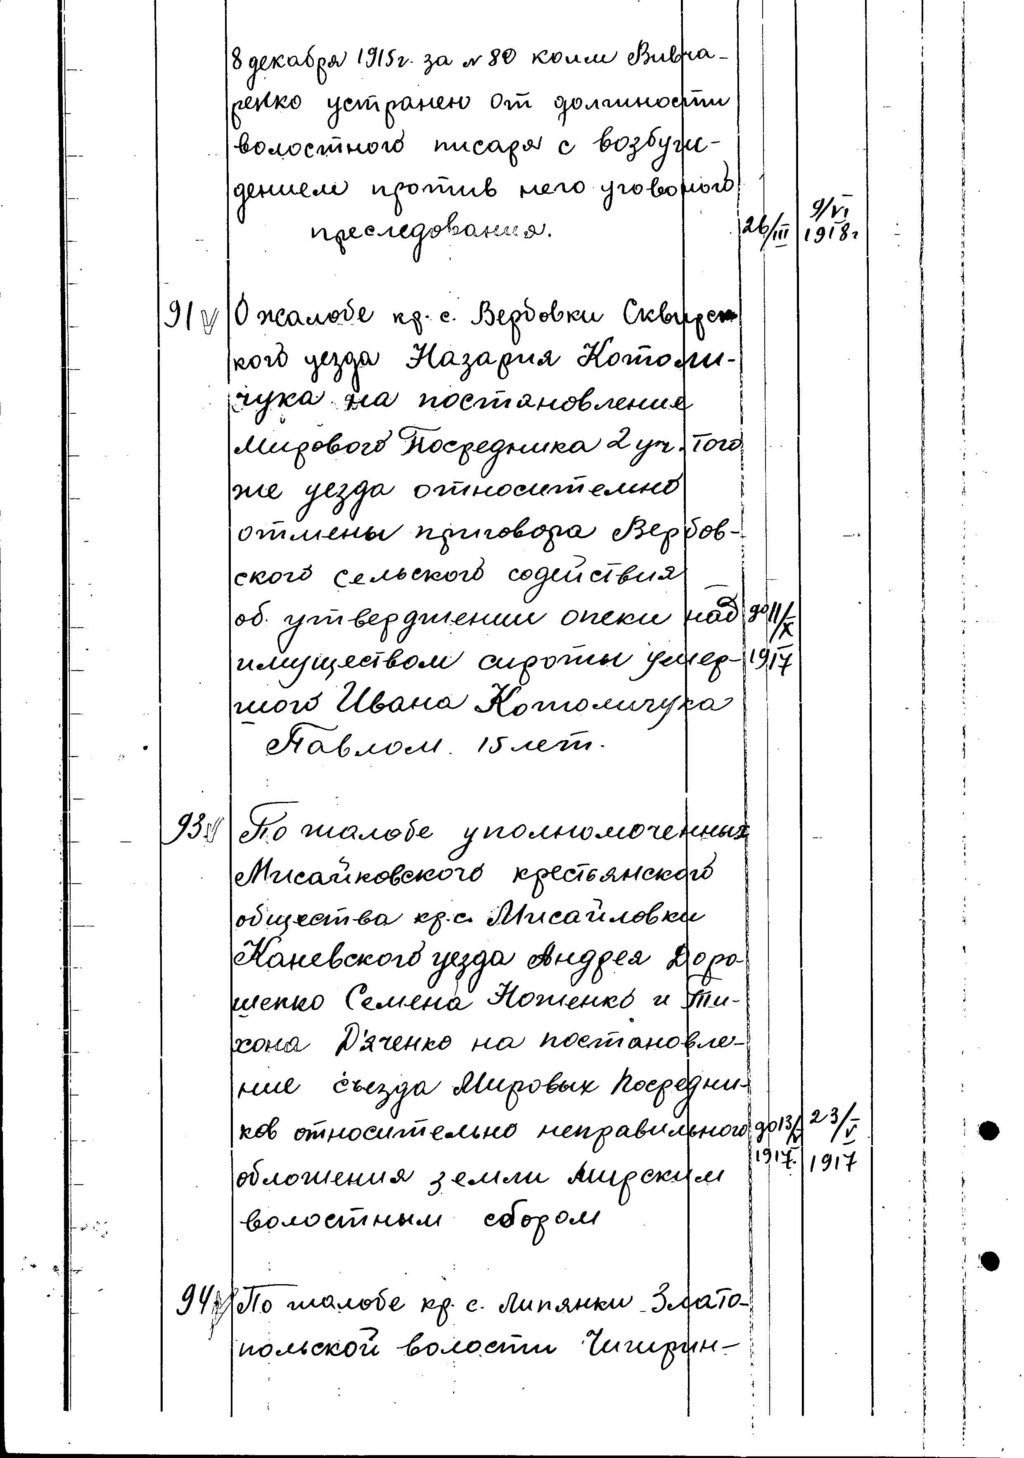 8 декабря 1915г. за №80 коим Вивча-
ренко устранен от должности
волостного писаря с возбуж-
дением против него уговоного
преследования. 26/III 9/VI 1918г
91 О жалобе кр. с. Вербовки Сквирс
кого уезда Назария Котоли-
чука на постановление
Мирового Посредника 2 уч. Того
же уезда относительно
отмены приговора Вербов-
ского сельского содействия
об. утверджении опеки над до 11/X
имуществом сироты умер- 1917
шого Ивана Котоличука
Павлом. 15 лет.
93 По жалобе уполномоченных
Мисайковского крестьянского
общества кр. с. Мисайловки
Каневского уезда Андрея Доро-
шенко Семена Ноженко и Ти-
хона Дяченко на постановле-
ние съезда Мировых Посредни-
ков относительно неправильного до 13/X 23/V
обложения земли Мирским 1917. 1917
волостным сбором
94 По жалобе кр. с. Липянки Злато-
польской волости Чигирин-